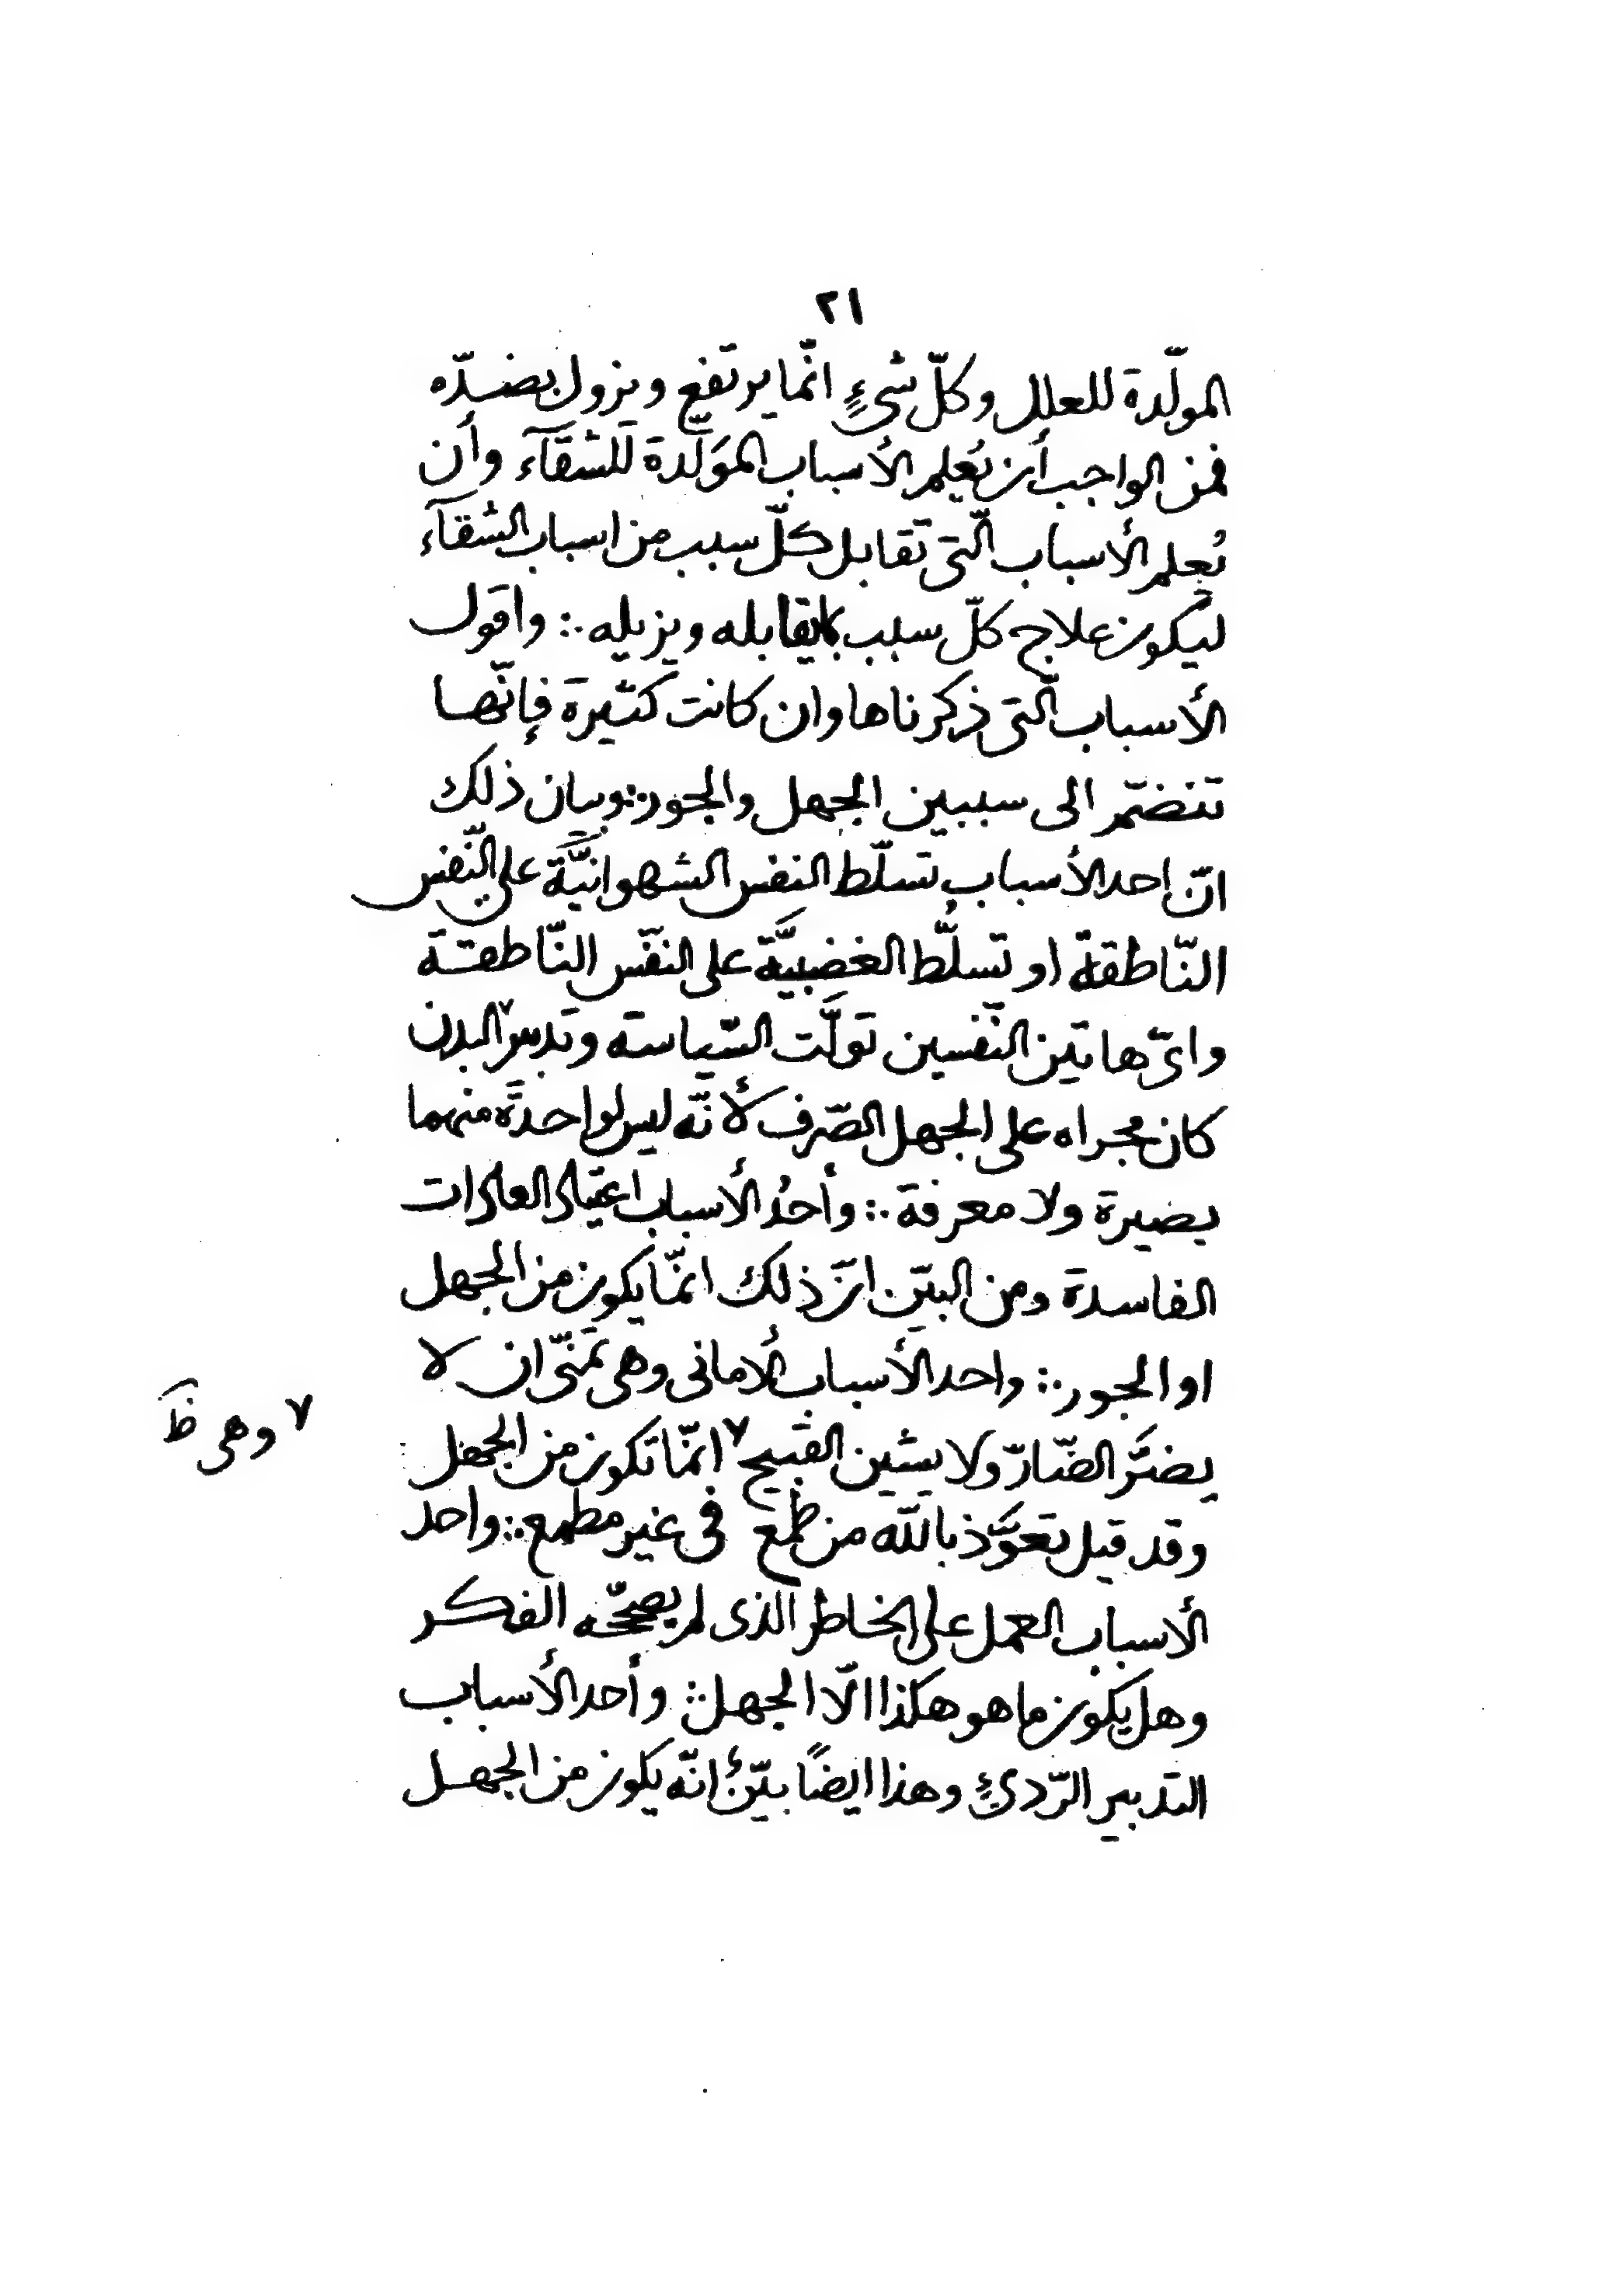 ٢١
المولّدة للعلل وكلّ شىءٍ انّما يرتفع ويزول بضدّه
فمن الواجب أن يُعلم الأسباب المولّدة للشقآء وأن
يُعلم الأسباب الّتى تقابل كلّ سبب من اسباب الشقآء
ليكون علاج كلّ سبب بما يقابله ويزيله ∴ واقول
الأسباب الّتى ذكرناها وان كانت كثيرة فإنّها
تنضمّ الى سببين الجهل والجور ∴ وبيان ذلك
انّ احد الأسباب تسلّط النفس الشهوانيَّة على النّفس
النّاطقة او تسلُّط الغضبيَّة على النفس النّاطقة
واىّ هاتين النّفسين تولَّت السّياسة وتدبير البدن
كان مجراه على الجهل الصّرف لأنّه ليس لواحدة منهما
بصيرة ولا معرفة ∴ وأحدُ الأسباب اعتياد العادات
الفاسدة ومن البيّن انّ ذلك انّما يكون من الجهل
او الجور ∴ واحد الأسباب الأمانى وهى تمنّى ان لا
يضرّ الضّارّ ولا يشين القبيح ٧ انّما تكون من الجهل
٧ وهى ظ
وقد قيل تعوَّذ بالله من طمع فى غير مطمع ∴ واحد
الأسباب العمل على الخاطر الذى لم يصحّحه الفكر
وهل يكون ما هو هكذا الّا الجهل ∴ وأحد الأسباب
التدبير الرّدىءٍ وهذا ايضًا بيّنٌ انّه يكون من الجهل